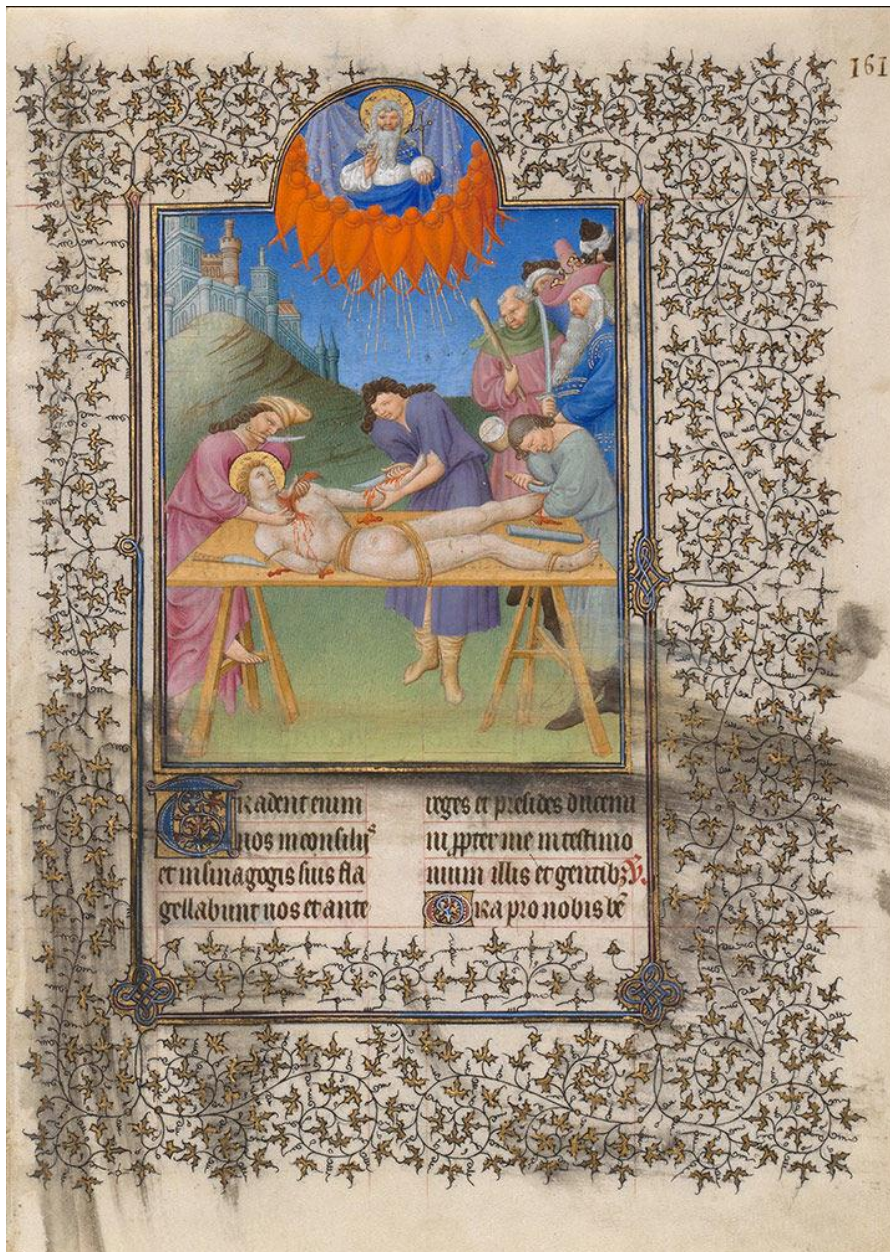 161
Tradent enim
uos in consiliis
et in sinagogis suis fla
gellabunt uos et ante
reges et presides ducemi
ni ꝓpter me in testimo
nium illis et gentibꝫ ℣.
Ora pro nobis be̅